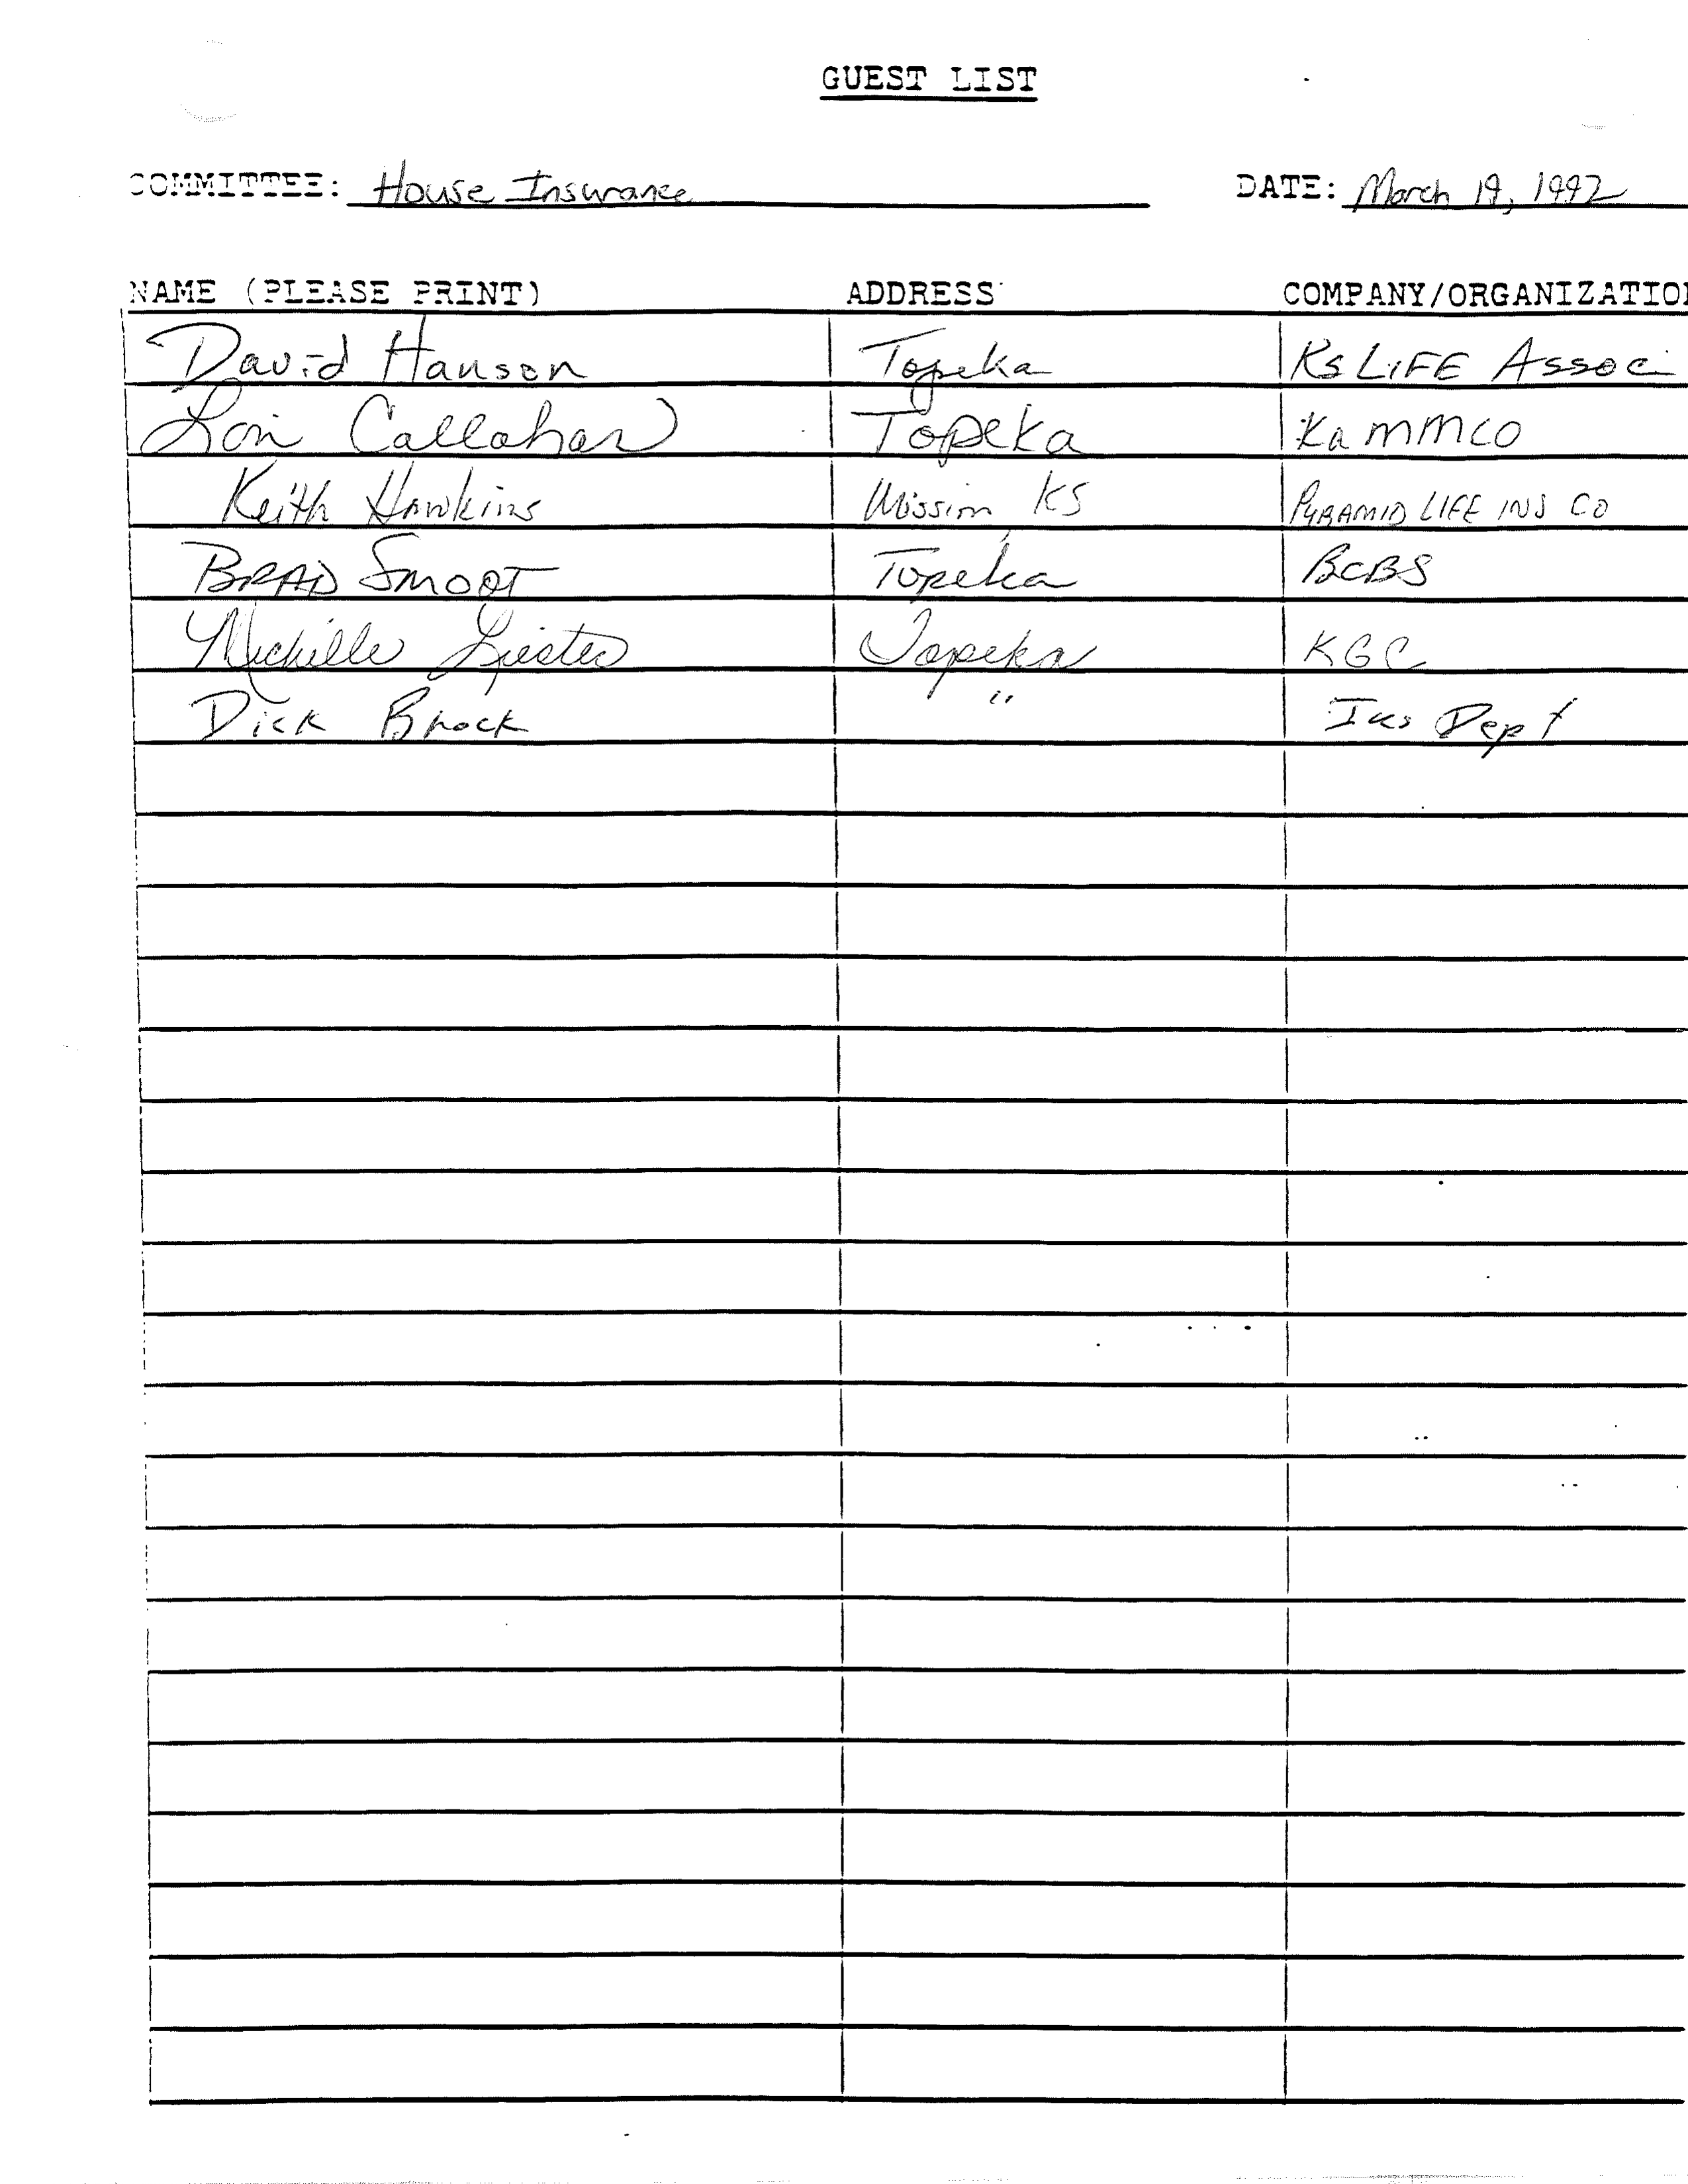 GUEST LIST
COMMITTEE: House Insurance DATE: March 19, 1992
NAME (PLEASE PRINT) ADDRESS COMPANY/ORGANIZATIO
David Hanson Topeka Ks LIFE Assoc
Lori Callahan Topeka KaMMCO
Keith Hawkins Mission KS PYRAMID LIFE INS CO
BRAD SMOOT Topeka BCBS
Michelle Liester Topeka KGC
Dick Brock " Ins Dept